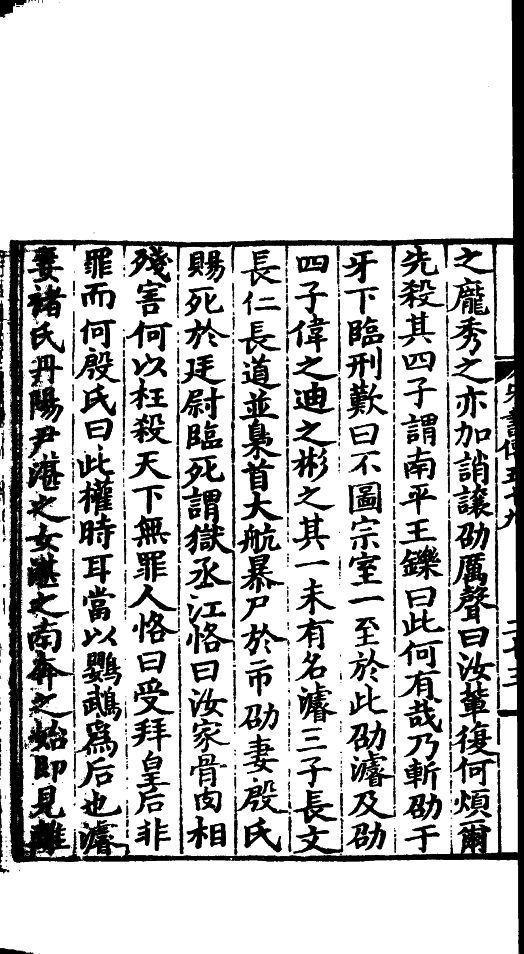 之龐秀之亦加誚讓劭厲聲曰汝輩復何煩爾
先殺其四子謂南平王鑠曰此何有哉乃斬劭于
牙下臨刑歎曰不圖宗室一至於此劭濬及劭
四子偉之迪之彬之其一未有名濬三子長文
長仁長道並梟首大航暴尸於市劭妻殷氏
賜死於廷尉臨死謂獄丞江恪曰汝家骨肉相
殘害何以枉殺天下無罪人恪曰受拜皇后非
罪而何殷氏曰此權時耳當以鸚鵡爲后也濬
妻褚氏丹陽尹湛之女湛之南奔之始即見離